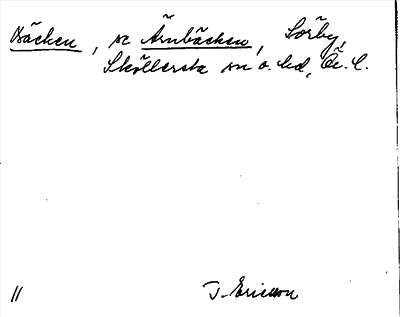 Bäcken, se Årnbäcken, Sörby,
Sköllersta sn o. hd, Ör. l.
11 J. Ericson